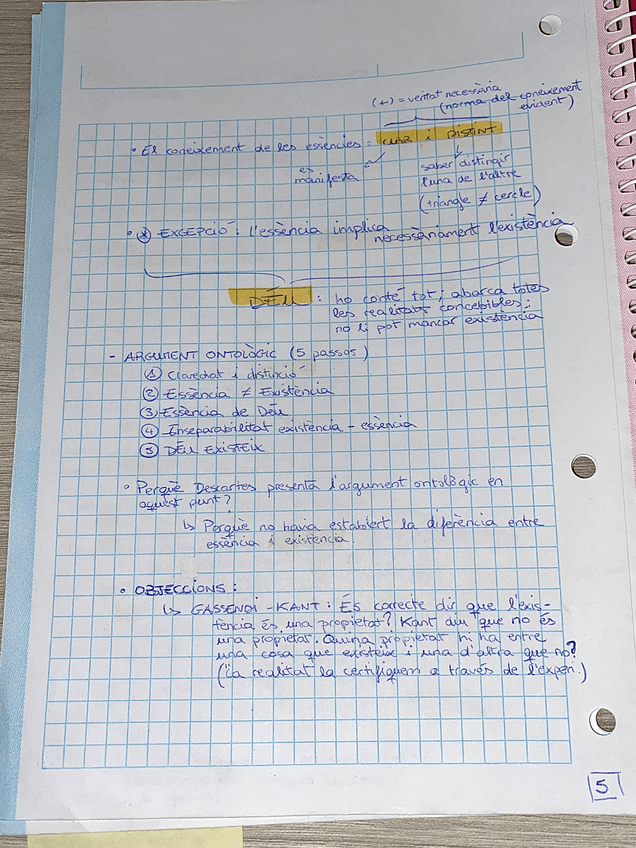 (+) = veritat necessària
(norma del coneixement
evident)
• El coneixement de les essències = CLAR i DISTINT
es
manifesta
saber distingir
l'una de l'altre
(triangle ≠ cercle)
• * EXCEPCIÓ: l'essència implica
necessàriament l'existència
DÉU : ho conté tot; abarca totes
les realitats concebibles;
no li pot mancar existència
- ARGUMENT ONTOLÒGIC (5 passos)
① Claredat i distinció
② Essència ≠ Existència
③ Essència de Déu
④ Inseparabilitat existència - essència
⑤ DÉU EXISTEIX
• Perquè Descartes presenta l'argument ontològic en
aquest punt?
↳ Perquè no havia establert la diferència entre
essència i existència
• OBJECCIONS:
↳ GASSENDI - KANT: És correcte dir que l'exis-
tència és una propietat? Kant diu que no és
una propietat. Quina propietat hi ha entre
una cosa que existeix i una d'altra que no?
("La realitat la certifiquem a través de l'experi.)
5